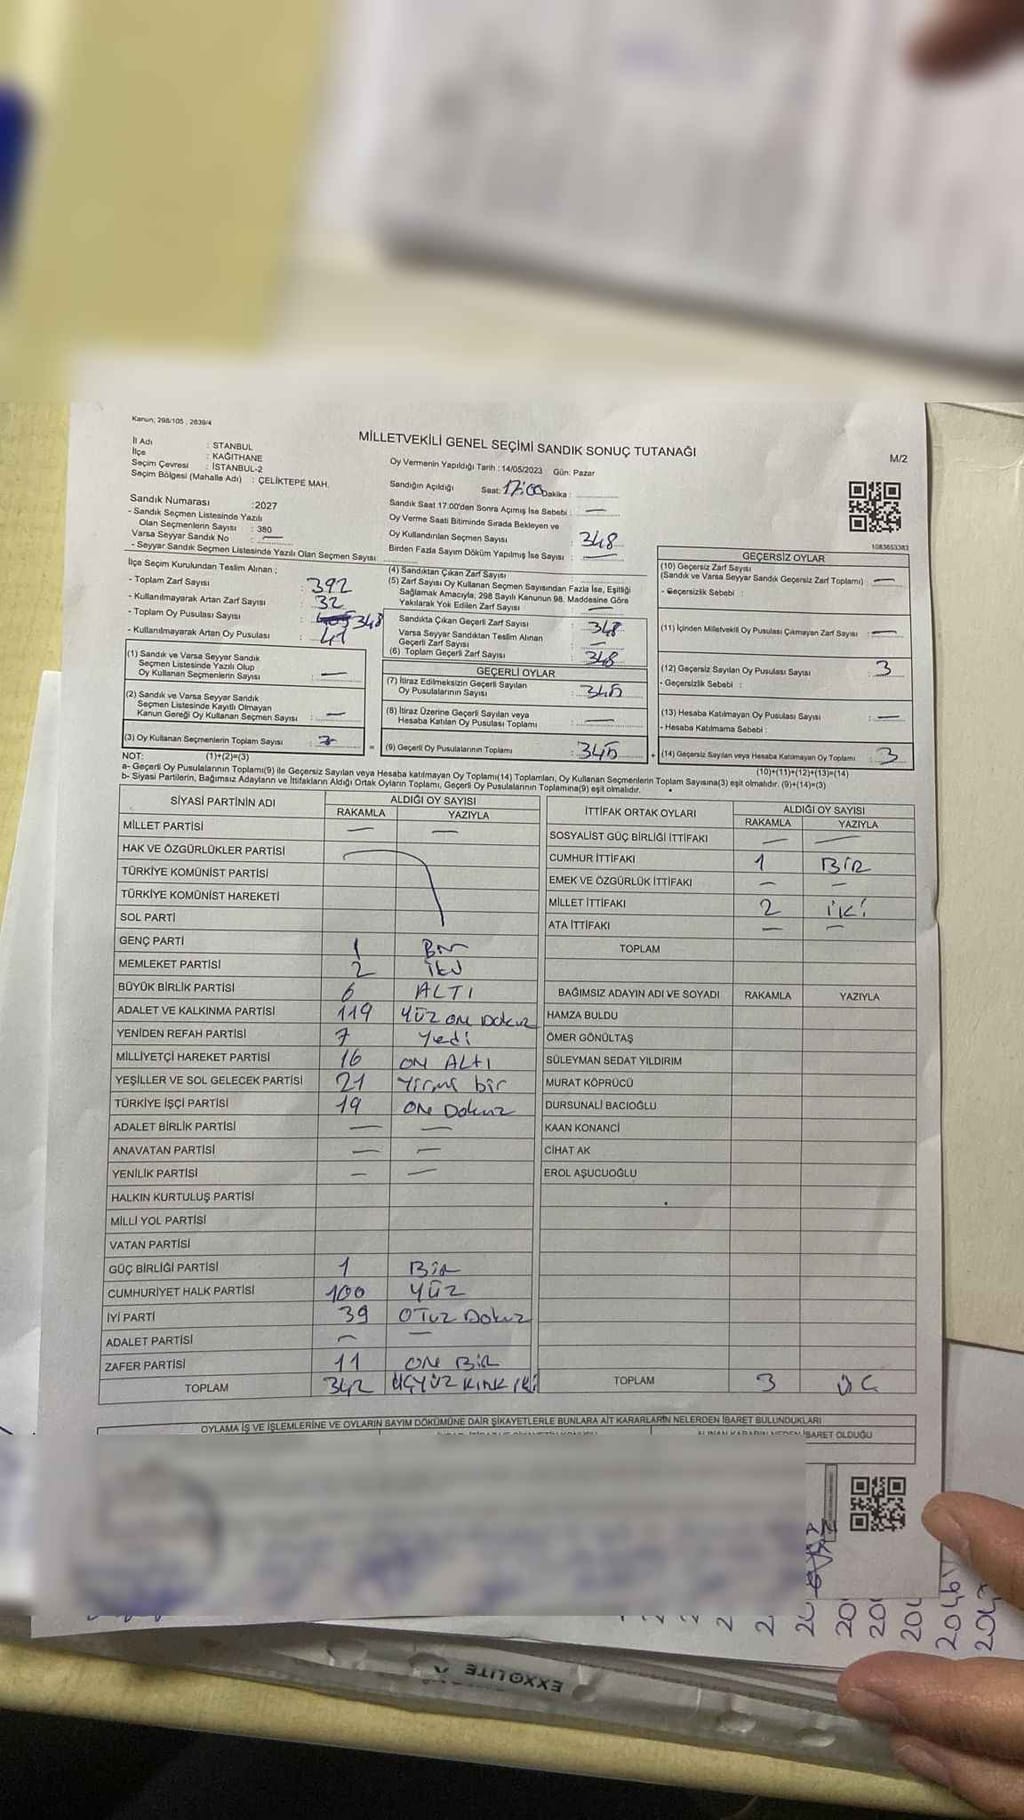 Kanun; 298/105 , 2839/4
MİLLETVEKİLİ GENEL SEÇİMİ SANDIK SONUÇ TUTANAĞI
M/2
İl Adı : STANBUL
İlçe : KAĞITHANE
Seçim Çevresi : İSTANBUL-2
Seçim Bölgesi (Mahalle Adı) : ÇELİKTEPE MAH.
Sandık Numarası :2027
- Sandık Seçmen Listesinde Yazılı
Olan Seçmenlerin Sayısı : 380
Varsa Seyyar Sandık No : —
- Seyyar Sandık Seçmen Listesinde Yazılı Olan Seçmen Sayısı :
Oy Vermenin Yapıldığı Tarih : 14/05/2023 Gün: Pazar
Sandığın Açıldığı Saat: 17:00 Dakika :
Sandık Saat 17.00'den Sonra Açımış İse Sebebi : —
Oy Verme Saati Bitiminde Sırada Bekleyen ve
Oy Kullandırılan Seçmen Sayısı : 348
Birden Fazla Sayım Döküm Yapılmış İse Sayısı : —
1083653383
İlçe Seçim Kurulundan Teslim Alınan ;
- Toplam Zarf Sayısı : 392
- Kullanılmayarak Artan Zarf Sayısı : 32
- Toplam Oy Pusulası Sayısı : 348
- Kullanılmayarak Artan Oy Pusulası : 41
(1) Sandık ve Varsa Seyyar Sandık
Seçmen Listesinde Yazılı Olup
Oy Kullanan Seçmenlerin Sayısı : —
(2) Sandık ve Varsa Seyyar Sandık
Seçmen Listesinde Kayıtlı Olmayan
Kanun Gereği Oy Kullanan Seçmen Sayısı : —
(3) Oy Kullanan Seçmenlerin Toplam Sayısı :
(4) Sandıktan Çıkan Zarf Sayısı
(5) Zarf Sayısı Oy Kullanan Seçmen Sayısından Fazla İse, Eşitliği
Sağlamak Amacıyla, 298 Sayılı Kanunun 98. Maddesine Göre
Yakılarak Yok Edilen Zarf Sayısı : —
Sandıkta Çıkan Geçerli Zarf Sayısı : 348
Varsa Seyyar Sandıktan Teslim Alınan
Geçerli Zarf Sayısı : —
(6) Toplam Geçerli Zarf Sayısı : 348
GEÇERLİ OYLAR
(7) İtiraz Edilmeksizin Geçerli Sayılan
Oy Pusulalarının Sayısı : 345
(8) İtiraz Üzerine Geçerli Sayılan veya
Hesaba Katılan Oy Pusulası Toplamı : —
= (9) Geçerli Oy Pusulalarının Toplamı : 345
GEÇERSİZ OYLAR
(10) Geçersiz Zarf Sayısı
(Sandık ve Varsa Seyyar Sandık Geçersiz Zarf Toplamı) : —
- Geçersizlik Sebebi :
(11) İçinden Milletvekili Oy Pusulası Çıkmayan Zarf Sayısı : —
(12) Geçersiz Sayılan Oy Pusulası Sayısı : 3
- Geçersizlik Sebebi :
(13) Hesaba Katılmayan Oy Pusulası Sayısı : —
- Hesaba Katılmama Sebebi :
+ (14) Geçersiz Sayılan veya Hesaba Katılmayan Oy Toplamı : 3
NOT: (1)+(2)=(3)
(10)+(11)+(12)+(13)=(14)
a- Geçerli Oy Pusulalarının Toplamı(9) ile Geçersiz Sayılan veya Hesaba katılmayan Oy Toplamı(14) Toplamları, Oy Kullanan Seçmenlerin Toplam Sayısına(3) eşit olmalıdır. (9)+(14)=(3)
b- Siyasi Partilerin, Bağımsız Adayların ve İttifakların Aldığı Ortak Oyların Toplamı, Geçerli Oy Pusulalarının Toplamına(9) eşit olmalıdır.
SİYASİ PARTİNİN ADI
ALDIĞI OY SAYISI
RAKAMLA YAZIYLA
MİLLET PARTİSİ — —
HAK VE ÖZGÜRLÜKLER PARTİSİ
TÜRKİYE KOMÜNİST PARTİSİ
TÜRKİYE KOMÜNİST HAREKETİ
SOL PARTİ
GENÇ PARTİ 1 Bir
MEMLEKET PARTİSİ 2 iki
BÜYÜK BİRLİK PARTİSİ 6 ALTI
ADALET VE KALKINMA PARTİSİ 119 YÜZ ON Dokuz
YENİDEN REFAH PARTİSİ 7 Yedi
MİLLİYETÇİ HAREKET PARTİSİ 16 ON ALTI
YEŞİLLER VE SOL GELECEK PARTİSİ 21 Yirmi bir
TÜRKİYE İŞÇİ PARTİSİ 19 ON Dokuz
ADALET BİRLİK PARTİSİ — —
ANAVATAN PARTİSİ — —
YENİLİK PARTİSİ — —
HALKIN KURTULUŞ PARTİSİ
MİLLİ YOL PARTİSİ
VATAN PARTİSİ
GÜÇ BİRLİĞİ PARTİSİ 1 BİR
CUMHURİYET HALK PARTİSİ 100 YÜZ
İYİ PARTİ 39 OTUZ Dokuz
ADALET PARTİSİ — —
ZAFER PARTİSİ 11 ON BİR
TOPLAM 342 ÜÇYÜZ KIRK İKİ
İTTİFAK ORTAK OYLARI
ALDIĞI OY SAYISI
RAKAMLA YAZIYLA
SOSYALİST GÜÇ BİRLİĞİ İTTİFAKI — —
CUMHUR İTTİFAKI 1 BİR
EMEK VE ÖZGÜRLÜK İTTİFAKI — —
MİLLET İTTİFAKI 2 İKİ
ATA İTTİFAKI — —
TOPLAM
BAĞIMSIZ ADAYIN ADI VE SOYADI RAKAMLA YAZIYLA
HAMZA BULDU
ÖMER GÖNÜLTAŞ
SÜLEYMAN SEDAT YILDIRIM
MURAT KÖPRÜCÜ
DURSUNALİ BACIOĞLU
KAAN KONANCİ
CİHAT AK
EROL AŞUCUOĞLU
TOPLAM 3 ÜÇ
OYLAMA İŞ VE İŞLEMLERİNE VE OYLARIN SAYIM DÖKÜMÜNE DAİR ŞİKAYETLERLE BUNLARA AİT KARARLARIN NELERDEN İBARET BULUNDUKLARI
İBARET OLDUĞU
2046
2047
EXXOLITE